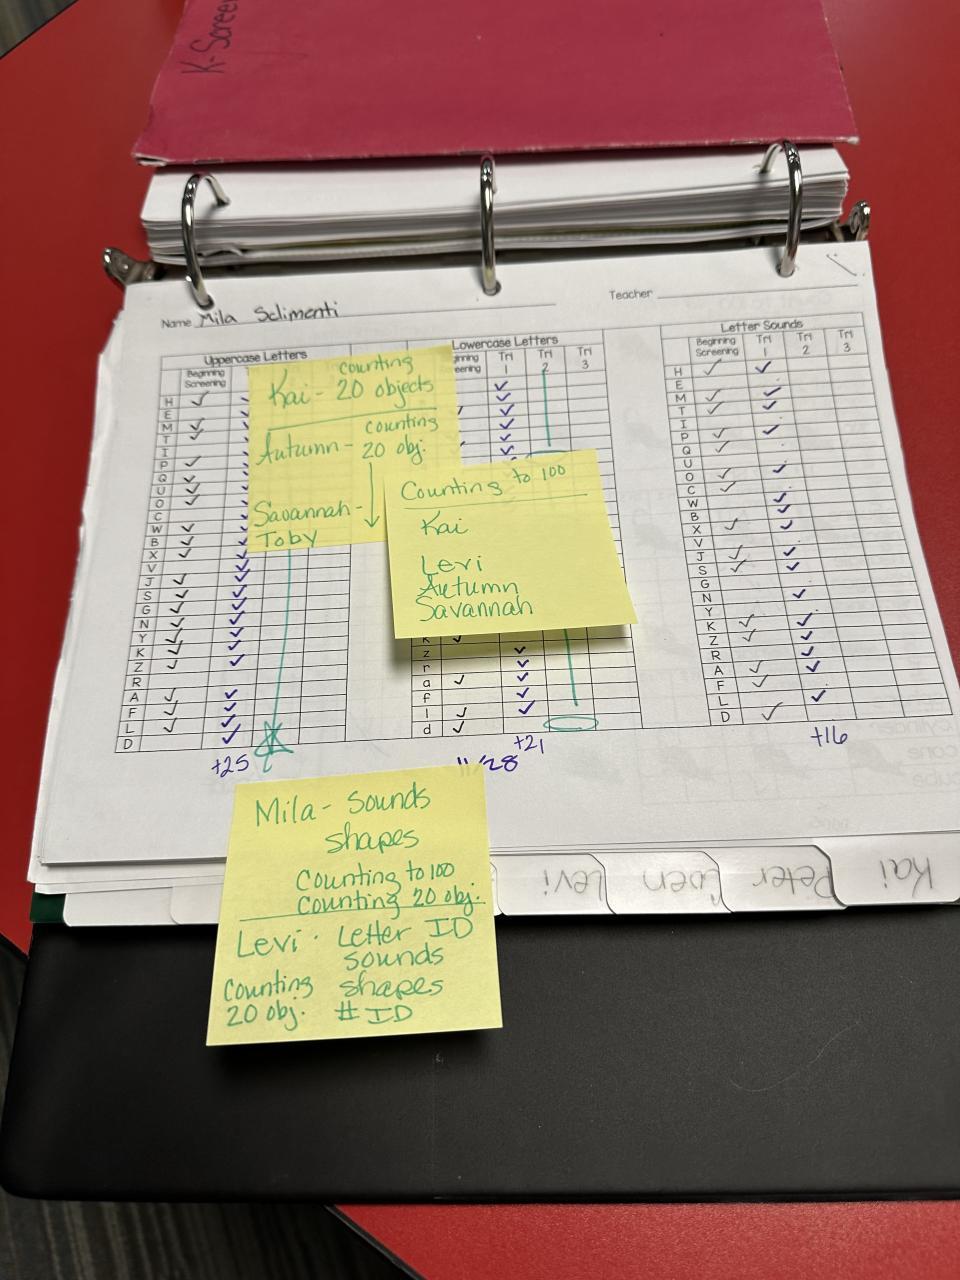 K-Screen
Name Mila Sclimenti
Teacher
Uppercase Letters
Beginning
Screening
H
E
M
T
I
P
Q
U
O
C
W
B
X
V
J
S
G
N
Y
K
Z
R
A
F
L
D
+25
Lowercase Letters
Tri
1
Tri
2
Tri
3
k
z
r
a
f
l
d
+21
11/28
Letter Sounds
Beginning
Screening
Tri
1
Tri
2
Tri
3
H
E
M
T
I
P
Q
U
O
C
W
B
X
V
J
S
G
N
Y
K
Z
R
A
F
L
D
+16
counting
Kai - 20 objects
counting
Autumn - 20 obj.
Savannah -
Toby
Counting to 100
Kai
Levi
Autumn
Savannah
Mila - Sounds
shapes
Counting to 100
Counting 20 obj.
Levi - Letter ID
sounds
Counting shapes
20 obj. # ID
Levi
Coen
Peter
Kai